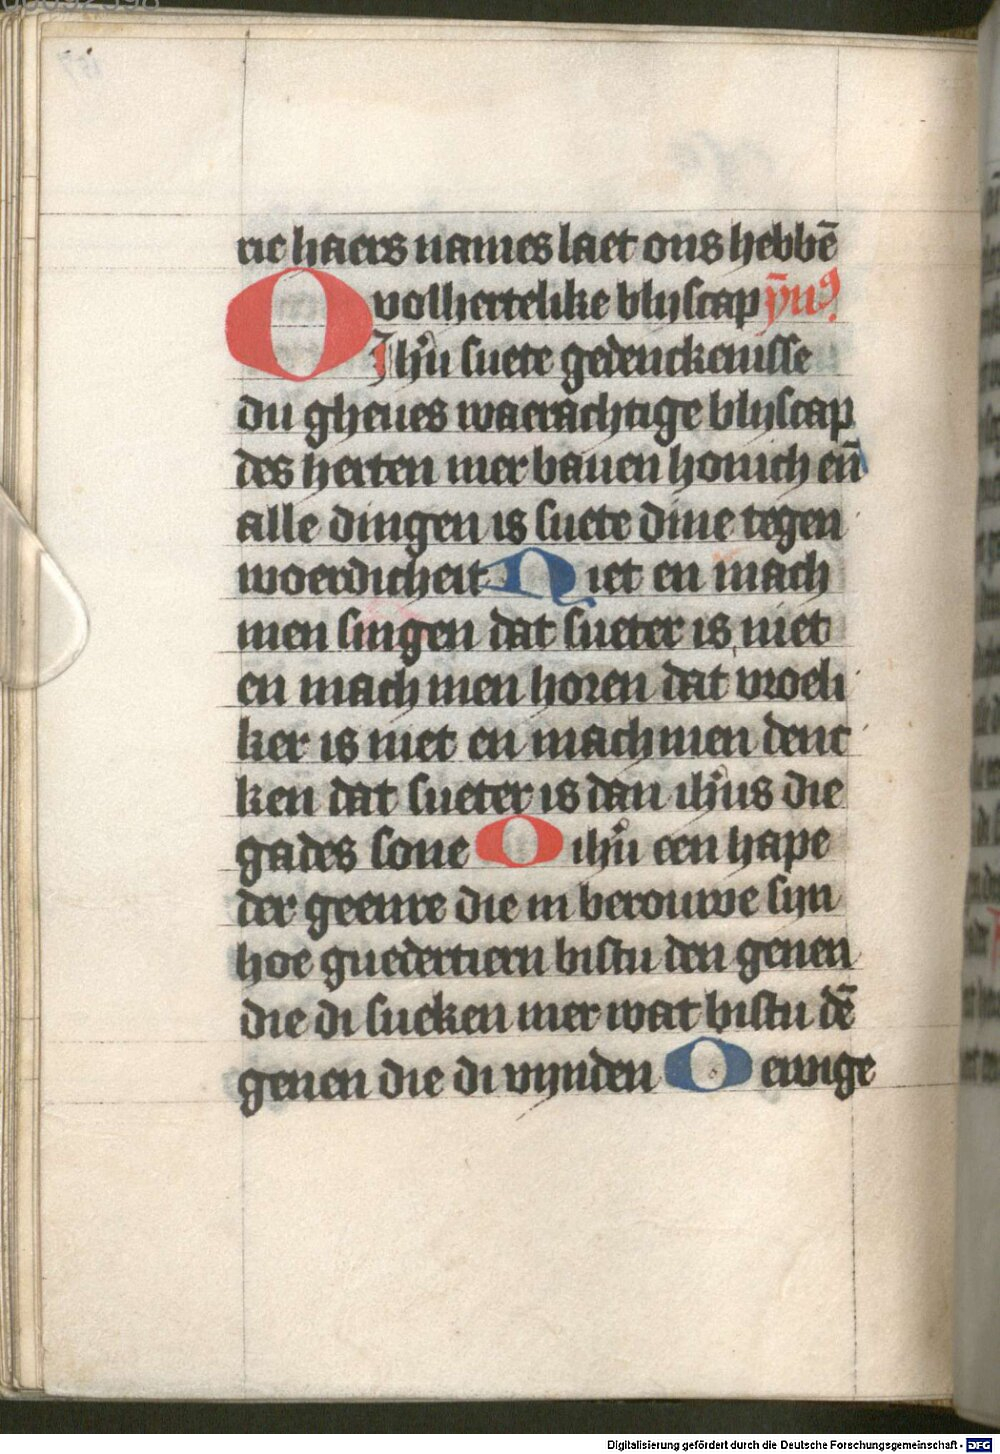 ric haers names laet ons hebbē
volhertelike blyscap ȳnꝰ
O Ihu suete gedenckenisse
du gheues waerachtige blyscap
des herten mer bauen honich en̄
alle dingen is suete dine tegen
woerdicheit Niet en mach
men singen dat sueter is niet
en mach men horen dat vroeli
ker is niet en mach men denc
ken dat sueter is dan ihus die
gades sone O ihu een hape
der geenre die in berouwe syn
hoe guedertiern bistu den genen
die di sueken mer wat bistu dē
genen die di vynden O ewige
Digitalisierung gefördert durch die Deutsche Forschungsgemeinschaft - DFG